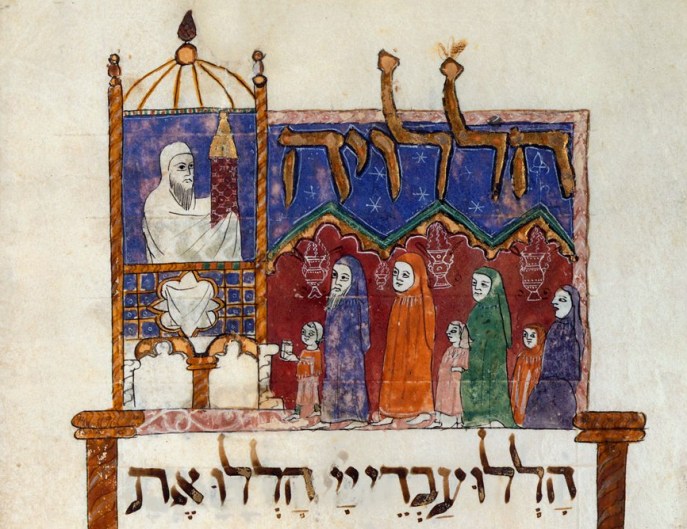 הללויה
הַלְלוּ עַבְדֵי יְיָ הַלְלוּ אֶת